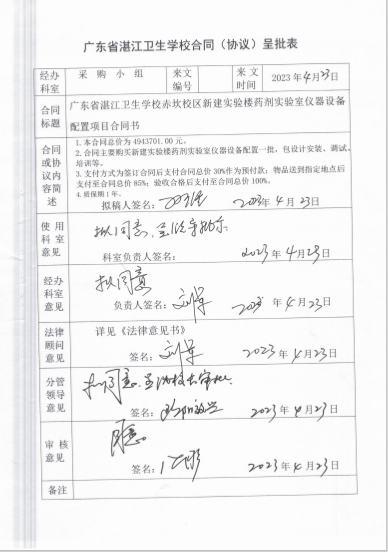 广东省湛江卫生学校合同（协议）呈批表
经办科室 采购小组 来文编号 来文时间 2023年4月23日
合同标题 广东省湛江卫生学校赤坎校区新建实验楼药剂实验室仪器设备
配置项目合同书
合同或协议内容简述
1.本合同总价是4943701.00元。
2.合同主要购买新建实验楼药剂实验室仪器设备配置一批，包设计安装、调试、
培训等。
3.支付方式为签订合同后支付合同总价30%作为预付款；物品送到指定地点后
支付至合同总价85%；验收合格后支付至合同总价100%。
4.质保期1年。
拟稿人签名： 2023年4月23日
使用科室意见 拟同意
科室负责人签名： 2023年4月23日
经办科室意见 拟同意
负责人签名： 2023年4月23日
法律顾问意见 详见《法律意见书》
签名： 2023年4月23日
分管领导意见 拟同意
签名： 2023年4月23日
审核意见 同意
签名： 2023年4月23日
备注